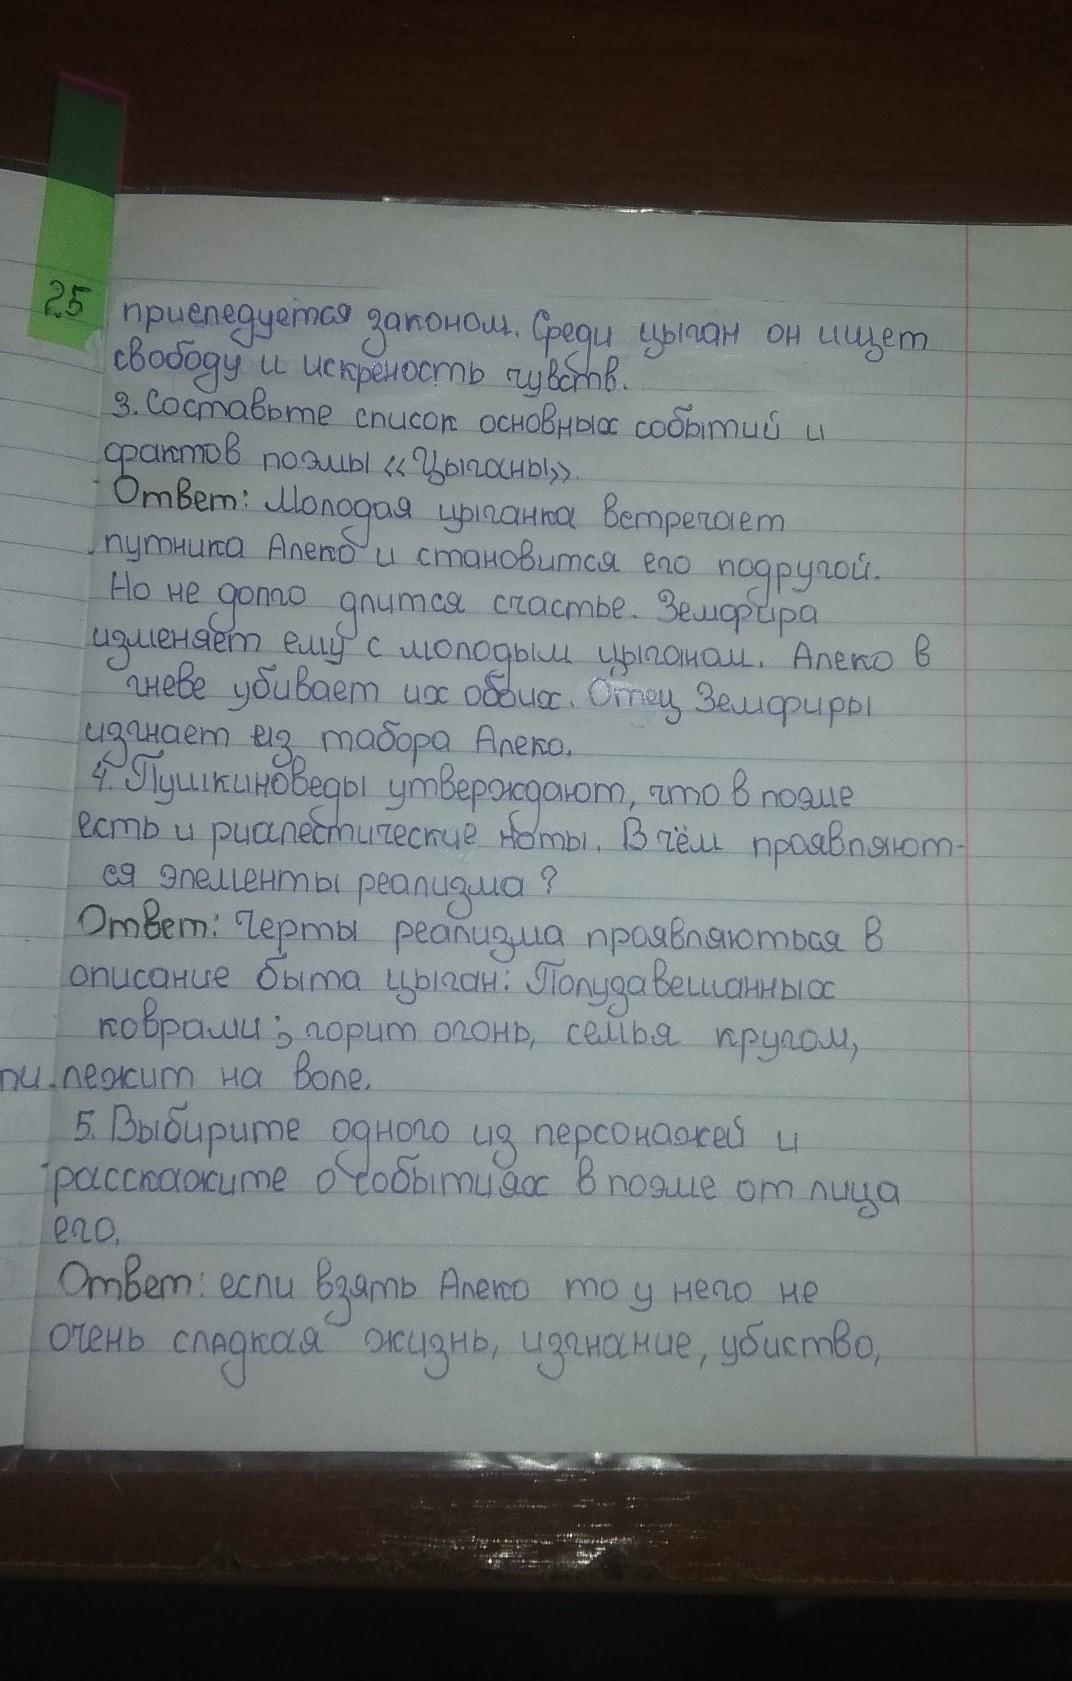 25
приспедуется законом. Среди цыган он ищет
свободу и искреность чувств.
3. Составьте список основных событий и
фактов поэмы «Цыганы».
Ответ: Молодая цыганка встречает
путника Алеко и становится его подругой.
Но не долго длится счастье. Земфира
изменяет ему с молодым цыганом. Алеко в
гневе убивает их обоих. Отец Земфиры
изгнает из табора Алеко.
4. Пушкиноведы утверждают, что в поэме
есть и риалестические ноты. В чём проявляют-
ся элементы реализма?
Ответ: Черты реализма проявляються в
описание быта цыган: Полузавешанных
коврами; горит огонь, семья кругом,
ли лежит на воле.
5. Выбирите одного из персонажей и
расскажите о событиях в поэме от лица
его.
Ответ: если взять Алеко то у него не
очень сладкая жизнь, изгнание, убиство,